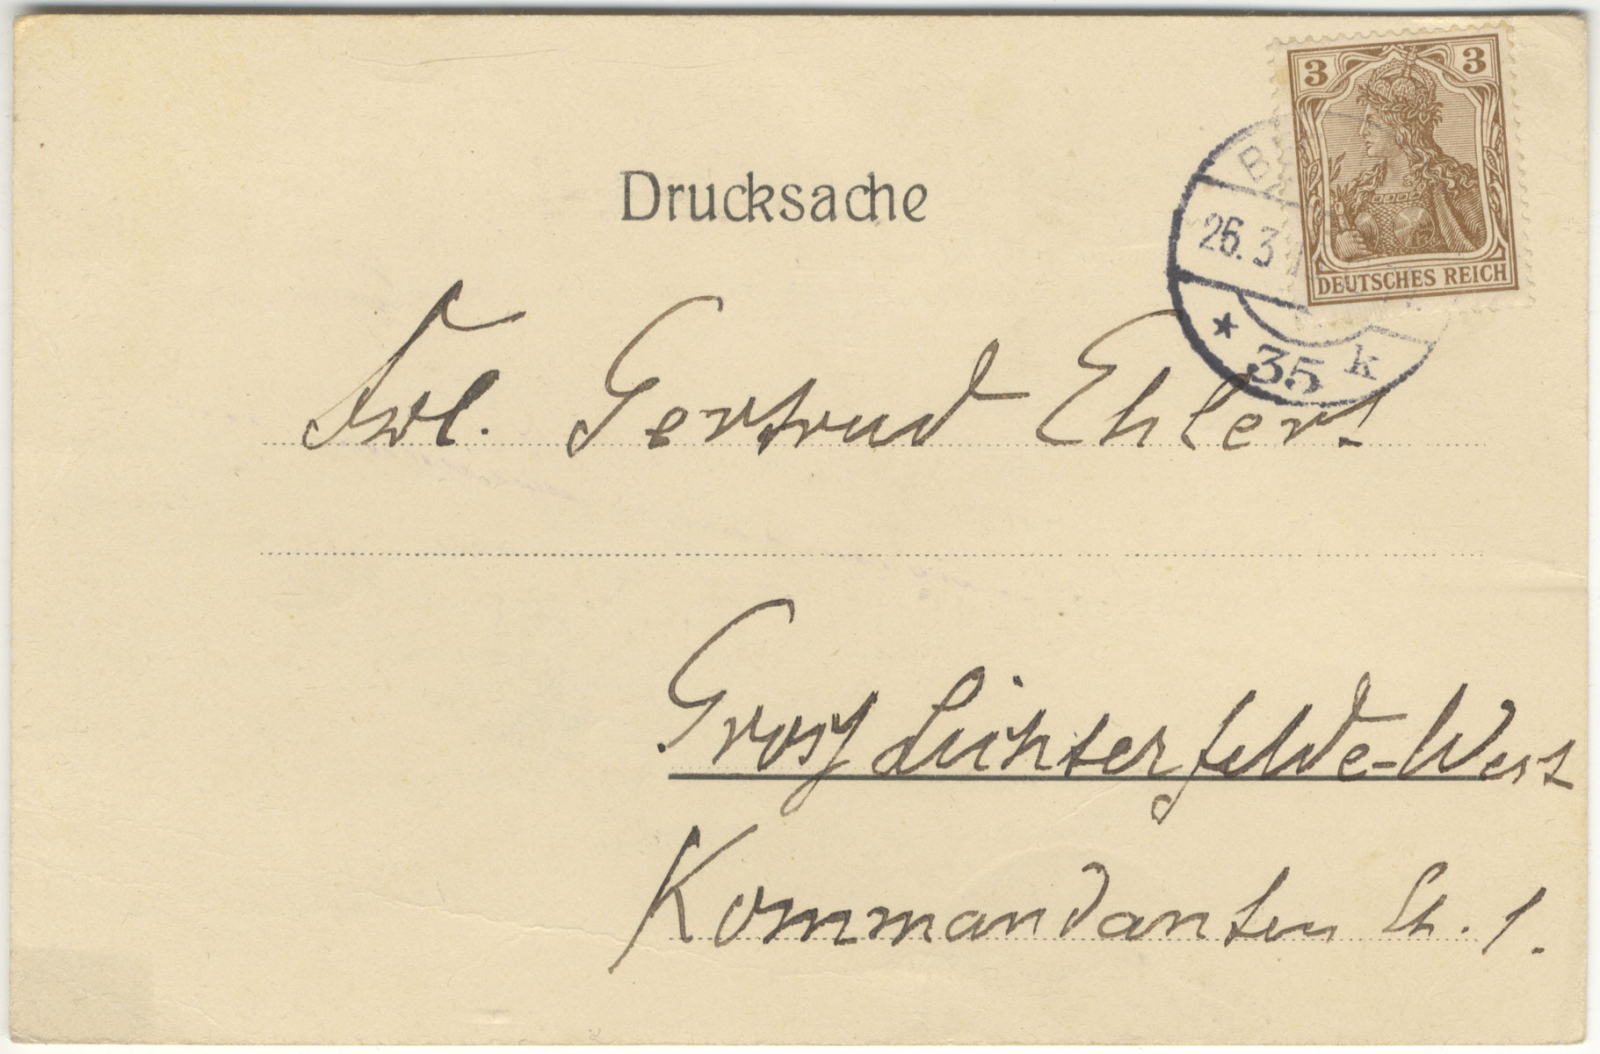 3 3
DEUTSCHES REICH
Drucksache
26.3
* 35 k
Frl. Gertrud Ehlers
Gross Lichterfelde-West
Kommandanten St. 1.